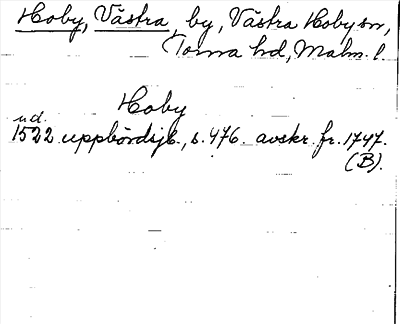 Hoby, Västra, by, Västra Hoby sn,
Torna hd, Malm. l.
Hoby
u.d.
1522 uppbördsjb., s. 476. avskr. fr. 1747.
(B).